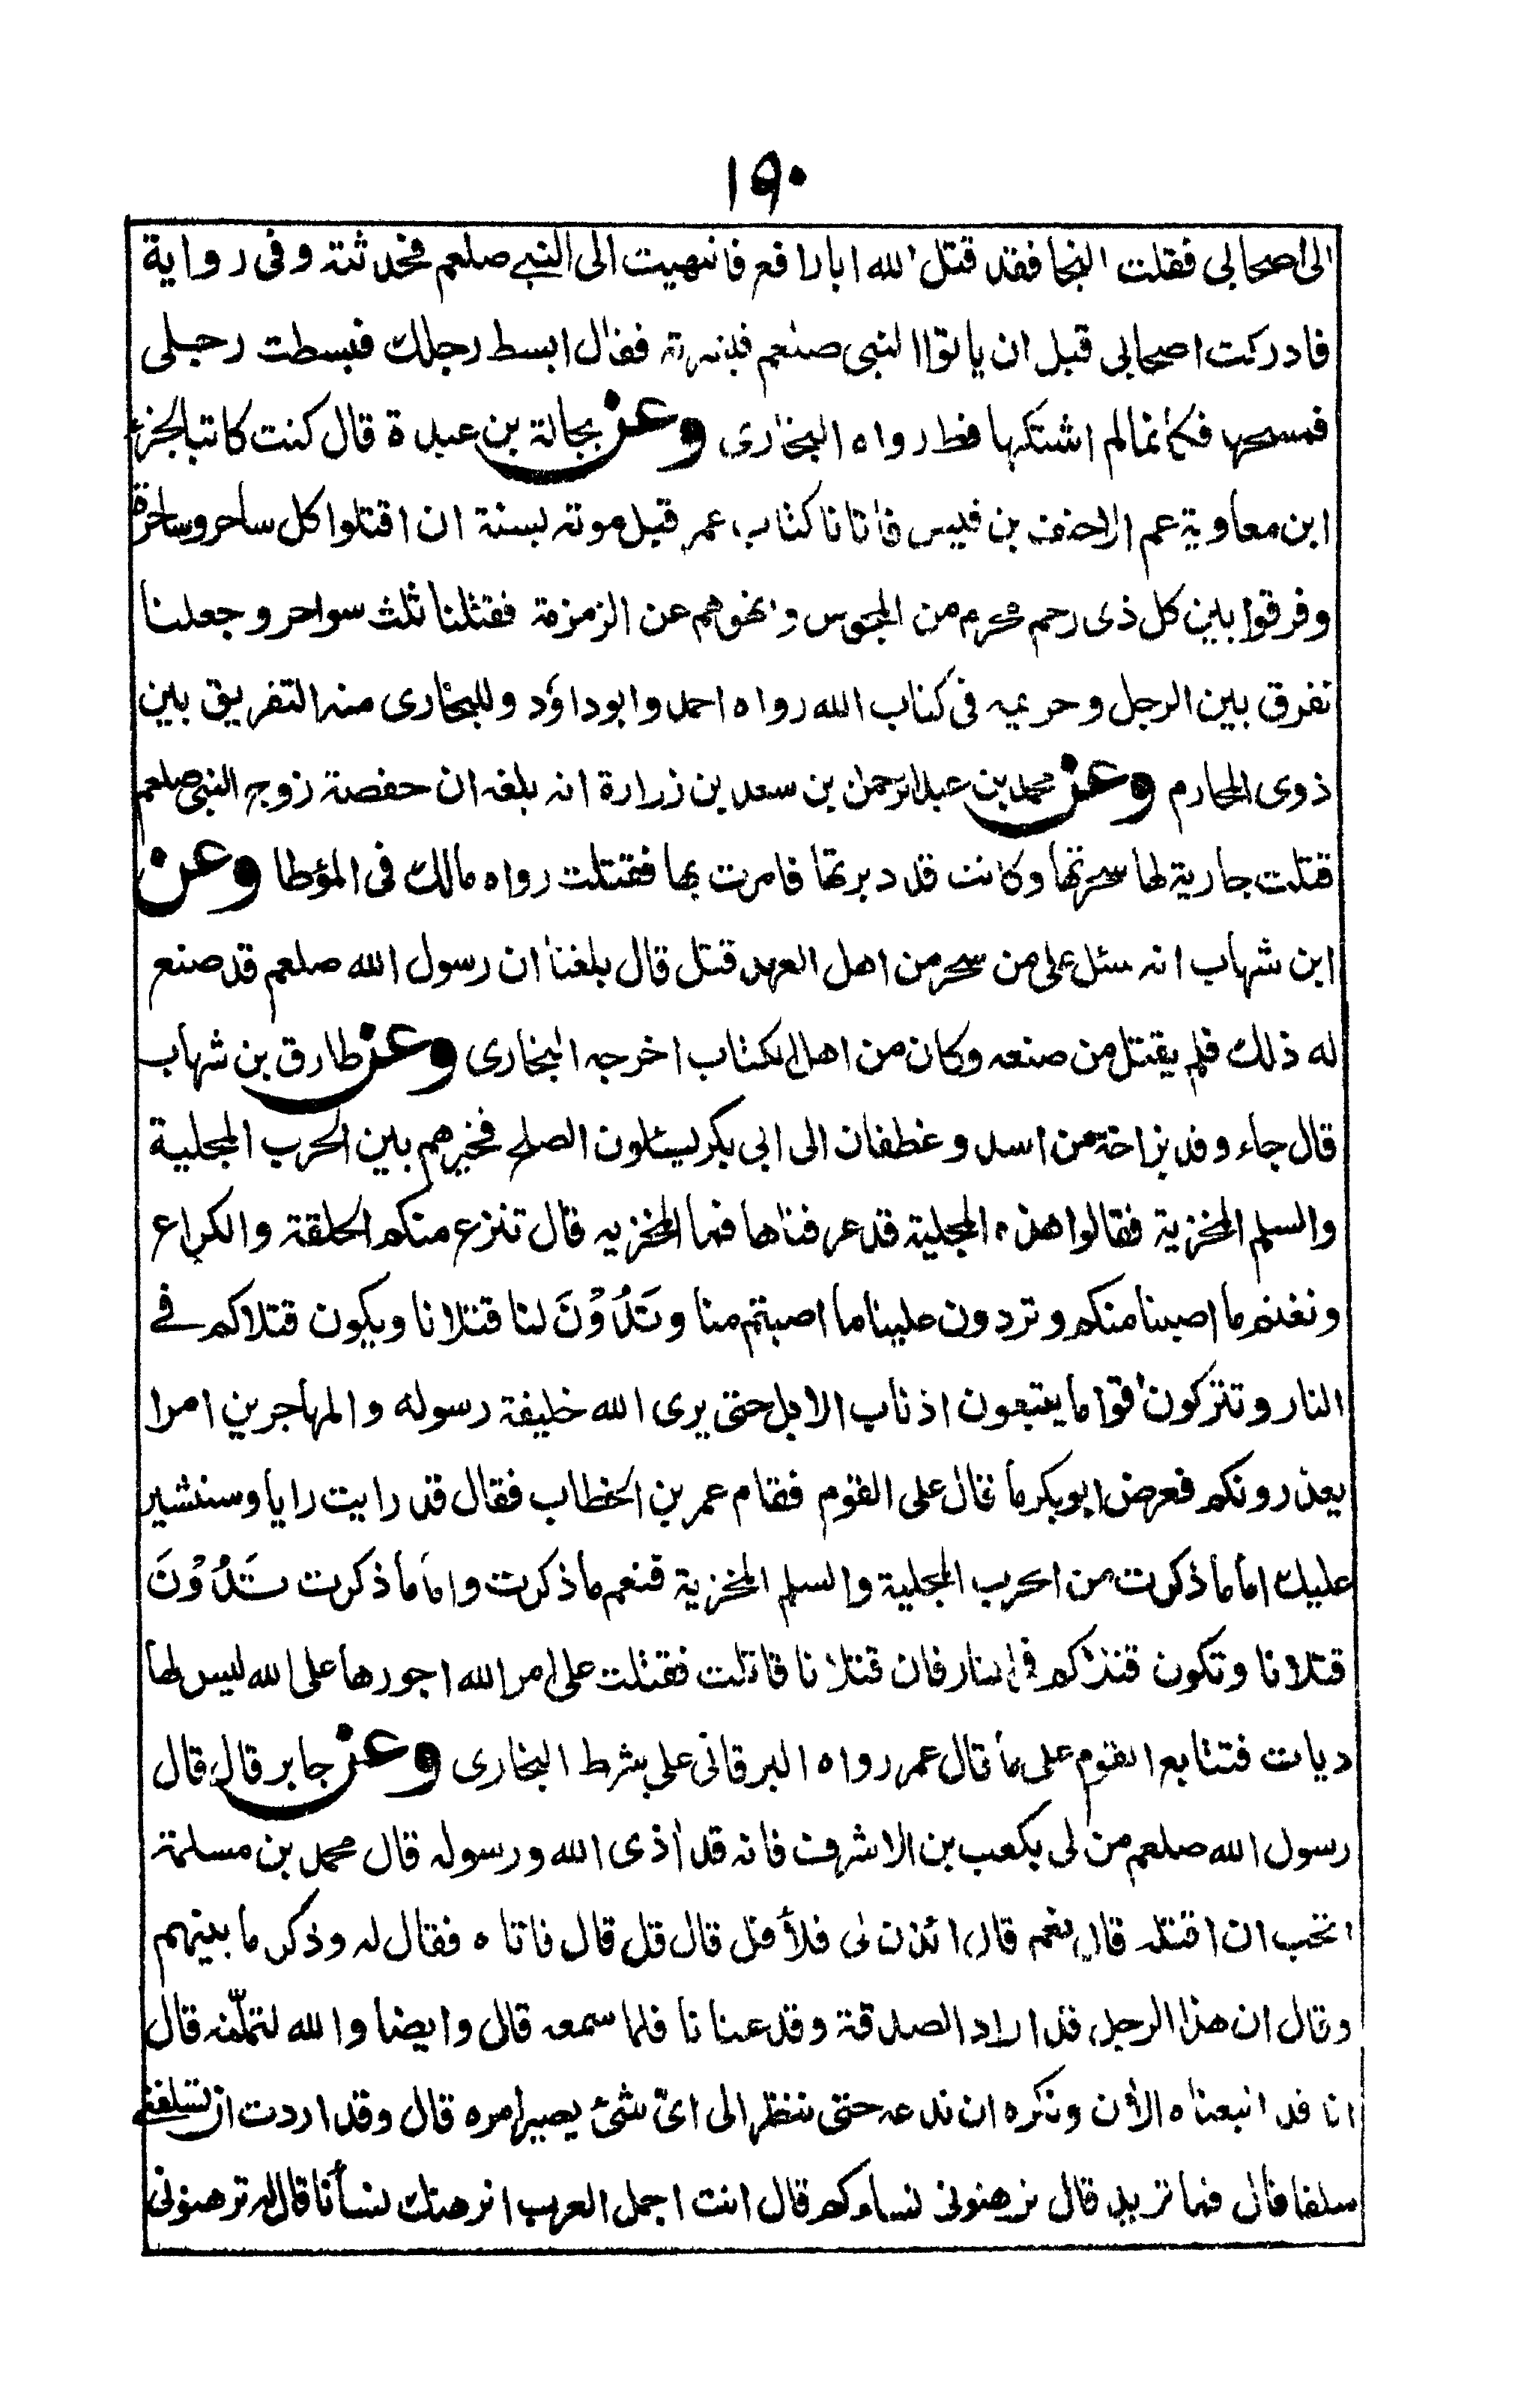 ١٩٠
الى اصحابى فقلت النجا فقد قتل الله ابا رافع فانتهيت الى النبى صلعم فحدثته وفى رواية
فادركت اصحابى قبل ان ياتوا النبى صلعم فبشرته فقال ابسط رجلك فبسطت رجلى
فمسحها فكانما لم اشتكها قط رواه البخارى وعن بجالة بن عبدة قال كنت كاتبا لجزء
ابن معاوية عم الاحنف بن قيس فاتانا كتاب عمر قبل موته بسنة ان اقتلوا كل ساحر وساحرة
وفرقوا بين كل ذى رحم محرم من المجوس وانهوهم عن الزمزمة فقتلنا ثلث سواحر وجعلنا
نفرق بين الرجل وحريمه فى كتاب الله رواه احمد وابوداؤد وللبخارى منه التفريق بين
ذوى المحارم وعن محمد بن عبدالرحمن بن سعد بن زرارة انه بلغه ان حفصة زوج النبى صلعم
قتلت جارية لها سحرتها وكانت قد دبرتها فامرت بها فقتلت رواه مالك فى المؤطا وعن
ابن شهاب انه سئل على من سحر من اهل العهد قتل قال بلغنا ان رسول الله صلعم قد صنع
له ذلك فلم يقتل من صنعه وكان من اهل الكتاب اخرجه البخارى وعن طارق بن شهاب
قال جاء وفد بزاخة من اسد وغطفان الى ابى بكر يسئلون الصلح فخيرهم بين الحرب المجلية
والسلم المخزية فقالوا هذه المجلية قد عرفناها فما المخزيه قال تنزع منكم الحلقة والكراع
ونغنم ما اصبنا منكم وتردون علينا ما اصبتم منا وتَدُوْنَ لنا قتلانا ويكون قتلاكم فے
النار وتتركون اقواما يتبعون اذناب الابل حتى يرى الله خليفة رسوله والمهاجرين امرا
يعذرونكم فعرض ابوبكر ما قال على القوم فقام عمر بن الخطاب فقال قد رايت رايا وسنشير
عليك اما ما ذكرت من الحرب المجلية والسلم المخزية فنعم ما ذكرت واما ما ذكرت تَدُوْنَ
قتلانا وتكون قتلاكم فى النار فان قتلانا قاتلت فقتلت على امر الله اجورها على الله ليس لها
ديات فتتابع القوم على ما قال عمر رواه البرقانى على شرط البخارى وعن جابر قال قال
رسول الله صلعم من لى بكعب بن الاشرف فانه قد اٰذى الله ورسوله قال محمد بن مسلمة
اتحب ان اقتله قال نعم قال ائذن لى فلأقل قال قل قال فاتاه فقال له وذكر ما بينهم
وقال ان هذا الرجل قد اراد الصدقة وقد عنانا فلما سمعه قال وايضا والله لتملّنه قال
انا قد اتبعناه الأن ونكره ان ندعه حتى ننظر الى اىّ شئ يصير امره قال وقد اردت ان تسلفنى
سلفا قال فما تريد قال ترهنونى نساءكم قال انت اجمل العرب انرهنك نساءنا قال له ترهنونى